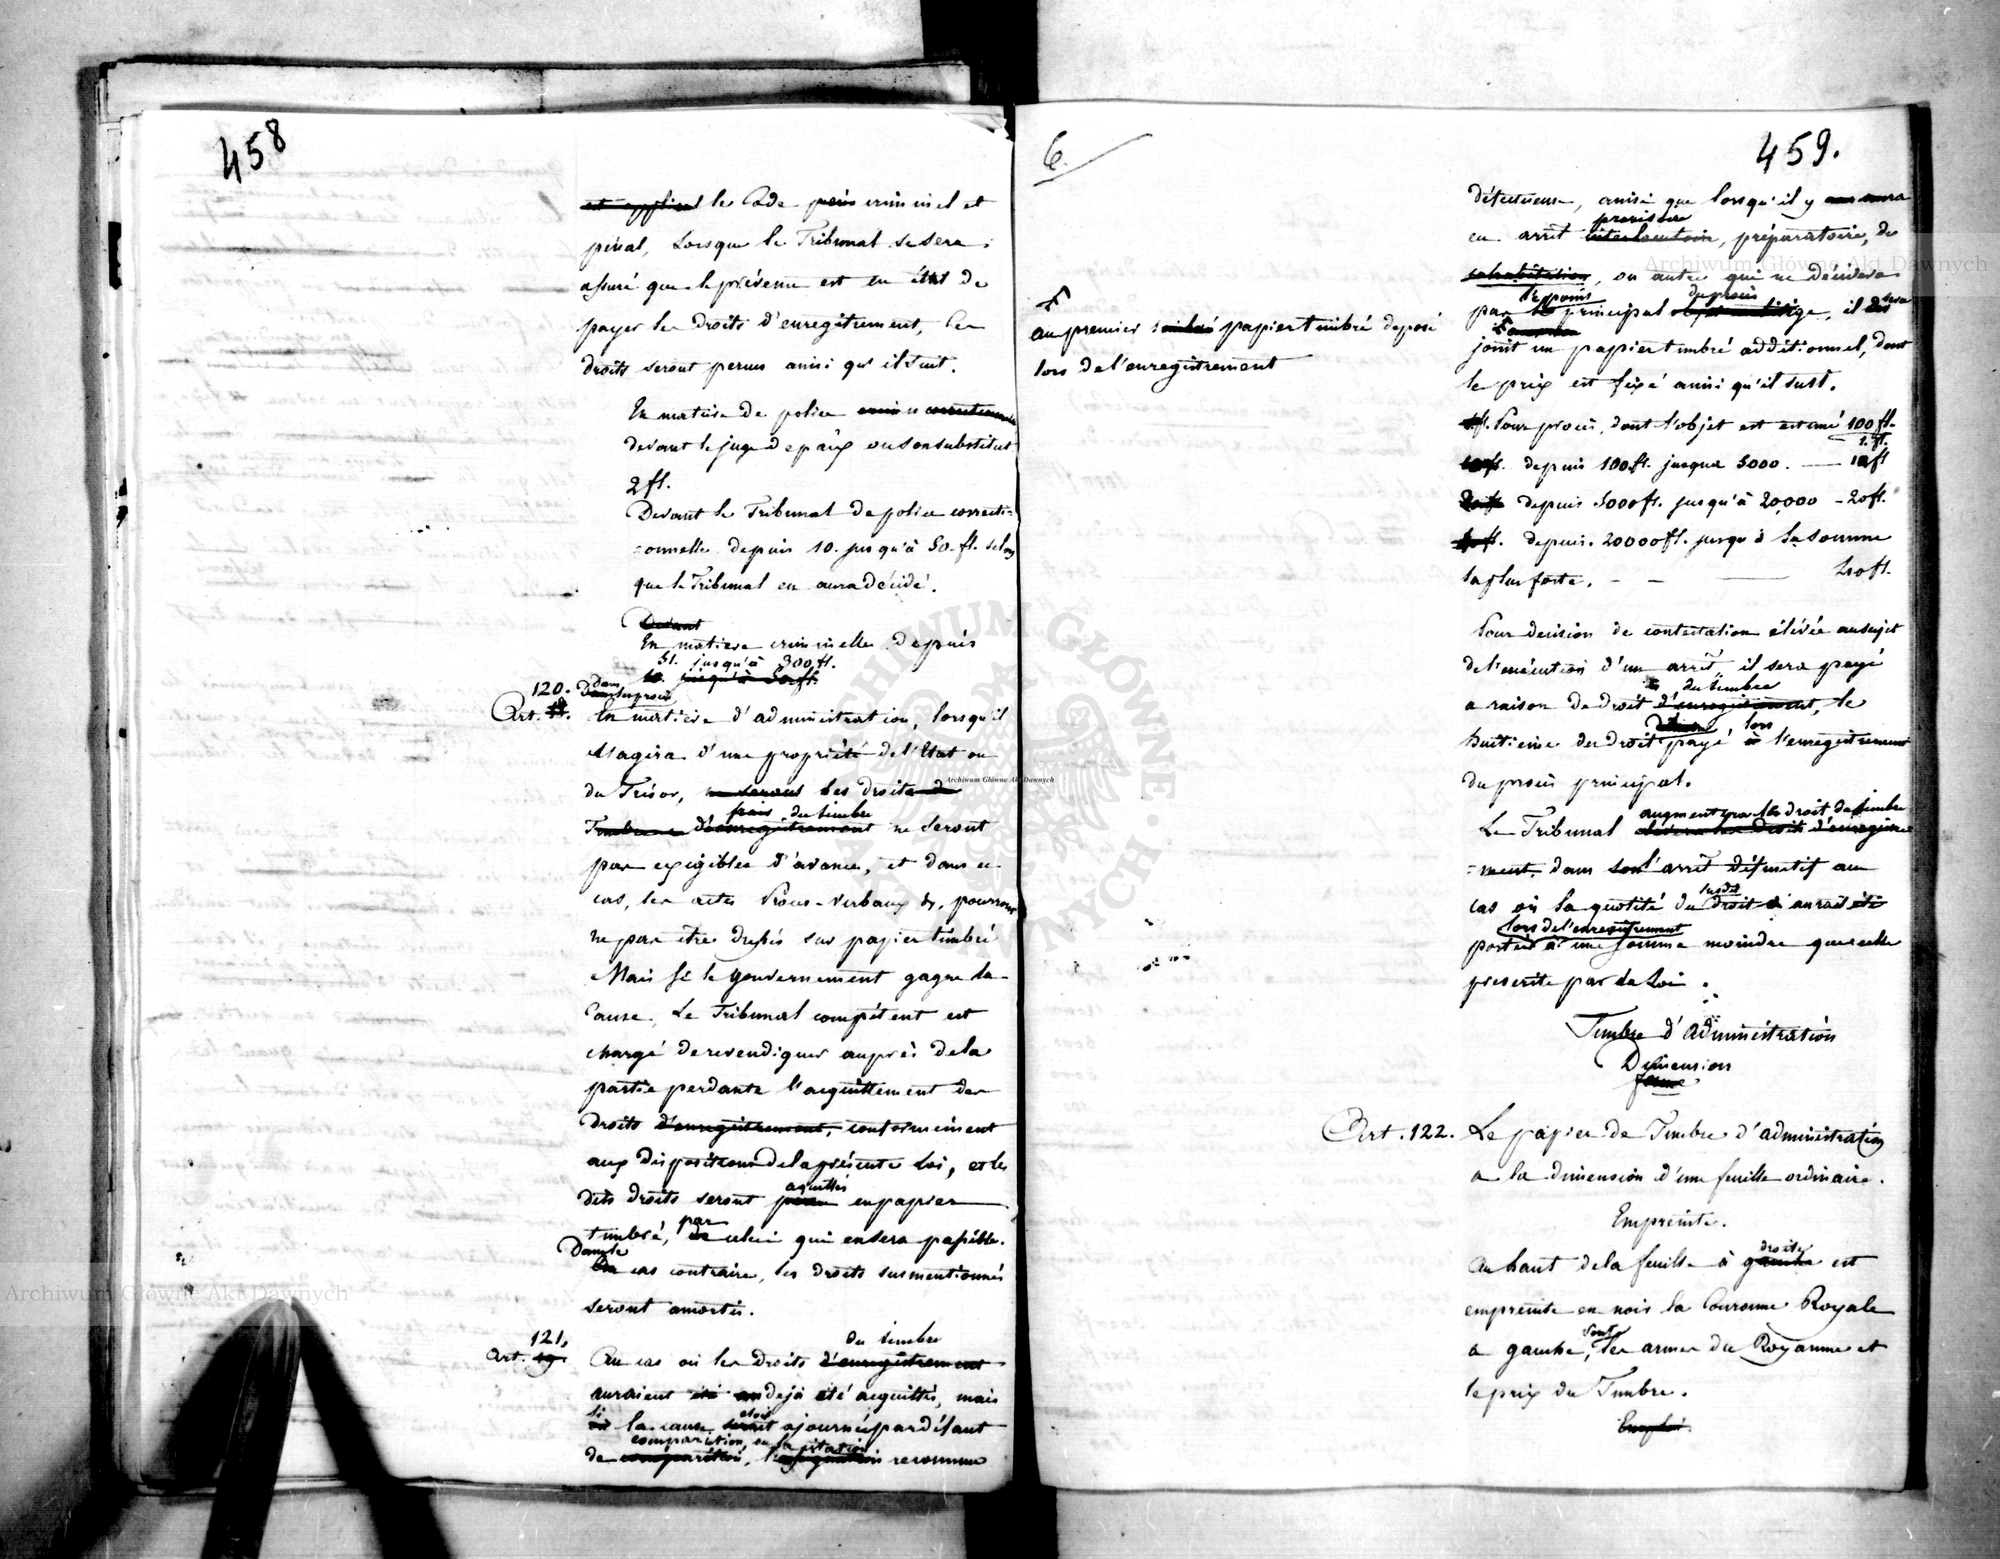 458
le Code criminel et
pénal, Lorsque le Tribunal se sera
assuré que le prévenu est en état de
payer les droits d'enregitrement, les
droits seront perçus ainsi qu'il suit.
En matière de police
devant le juge de paix ou son substitut
2 fl.
Devant le Tribunal de police correcti=
=onnelle depuis 10. jusqu'à 50. fl. selon
que le Tribunal en aura décidé.
Devant
En matiere criminelle depuis
51. jusqu'à 300 fl.
10. jusqu'à 50 fl.
120. Dans
Art. En matière d'administration, lorsqu'il
s'agira d'une propriété de l'Etat ou
du Trésor, les droits de
frais du timbre
d'enregitrement ne seront
pas exigibles d'avance, et dans ce
cas, les actes Procès-verbaux &. pourront
ne pas etre dressés sur papier timbré
Mais si le gouvernement gagne la
Cause, Le Tribunal compétent est
chargé de revendiquer auprès de la
partie perdante l'acquittement des
Droits d'enregitrement, conformément
aux dispositions de la présente Loi, et les
dits droits seront en papier
timbré, par celui qui en sera passible.
Dans le
cas contraire, les droits susmentionnés
seront amortis.
121. du timbre
Art. 19. Au cas où les droits d'enregitrement
auraient déjà été acquittés, mais
si la cause ajournée par défaut
comparition, ou la citation
de comparition, reconnue
6.
459.
défectueuse, ainsi que lorsqu'il y aura
provisoire
un arrêt interlocutoire, préparatoire, de
ou autre qui ne décidera
du procès
pas le principal, il sera
joint un papier timbré additionnel, dont
le prix est fixé ainsi qu'il suit.
au premier papier timbré deposé
lors de l'enregistrement
Pour procès, dont l'objet est estimé 100 fl.
1. fl.
depuis 100 fl. jusqua 5000. — 10 fl
depuis 5000 fl. jusqu'à 20,000 - 20 fl.
depuis. 20000 fl. jusqu'à la somme
la plus forte. - - — 40 fl.
Pour decision de contestation élévée au sujet
de l'exécution d'un arrêt il sera payé
du timbre
a raison de droit d'enregistrement, le
lors
huitieme du droit payé à l'enregitrement
du procès principal.
augmentera le droit de timbre
Le Tribunal élévera les droits d'enregitre
=ment, dans l'arrêt définitif au
susdit
cas où la quotité du droit aurait été
lors de l'enregistrement
portée à une somme moindre que celle
prescrite par la Loi.
Timbre d'administration
Dimension
forme
Art. 122. Le papier de Timbre d'administration
a la dimension d'une feuille ordinaire.
Empreinte.
droite
Au haut de la feuille à gauche est
empreinte en noir la Couronne Royale
sont
a gauche, les armes du Royaume et
le prix du Timbre.
Emploi.
Archiwum Główne Akt Dawnych
Archiwum Główne Akt Dawnych
Archiwum Główne Akt Dawnych